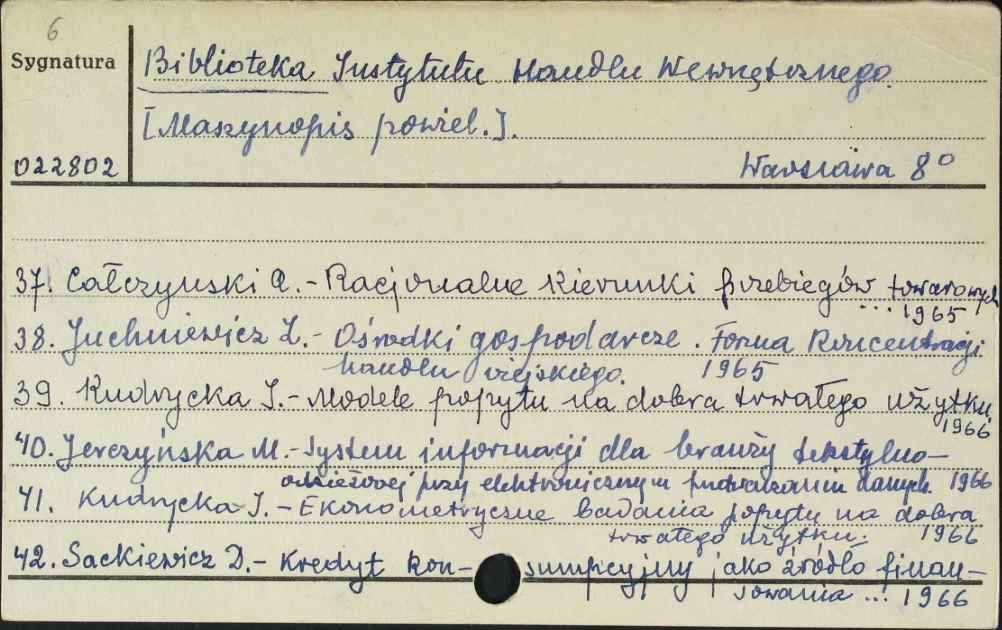 6
Sygnatura
Biblioteka Instytutu Handlu Wewnętrznego.
[Maszynopis powiel.].
022802
Warszawa 8°
37. Całczyński A. - Racjonalne kierunki przebiegów towarowych
... 1965
38. Juchniewicz Z. - Ośrodki gospodarcze. Forma koncentracji
handlu wiejskiego. 1965
39. Kudrycka I. - Modele popytu na dobra trwałego użytku
1966
40. Jerczyńska M. - System informacji dla branży tekstylno-
odzieżowej przy elektronicznym przetwarzaniu danych. 1966
41. Kudrycka I. - Ekonometryczne badania popytu na dobra
trwałego użytku. 1966
42. Sackiewicz D. - Kredyt kon-sumpcyjny jako źródło finan-
sowania ... 1966